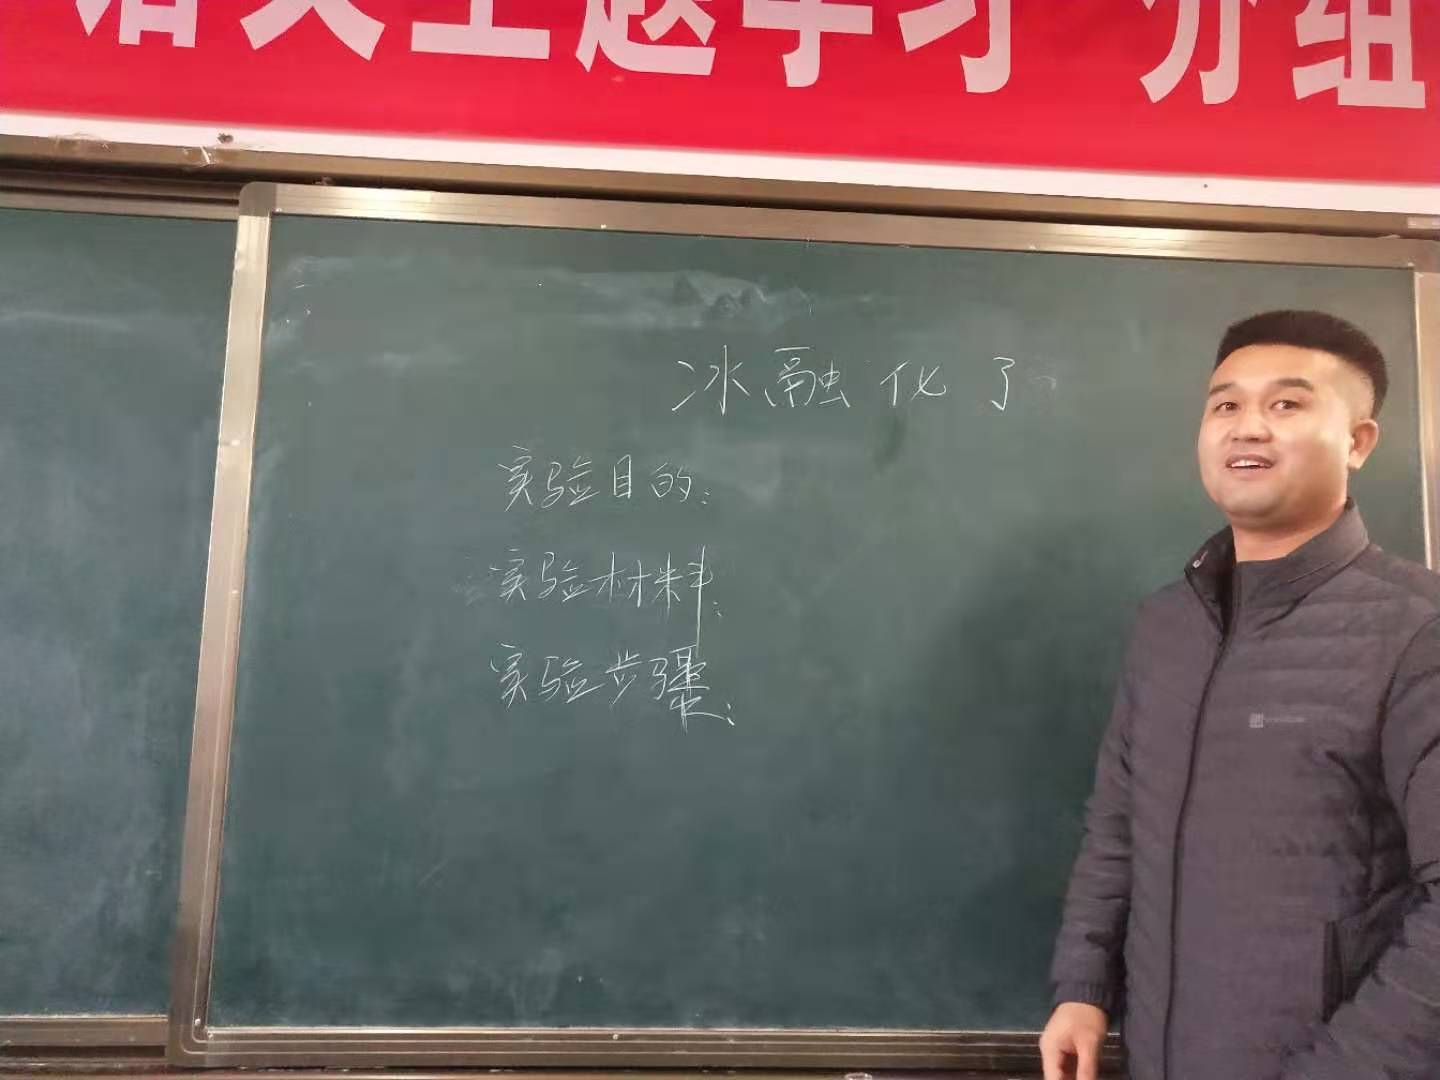 语文主题学习 分组
冰融化了
实验目的:
实验材料:
实验步骤: